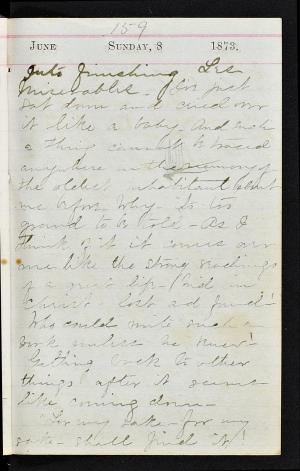 159
JUNE SUNDAY, 8 1873.
into finishing Les
Miserables. I've just
sat down and cried over
it like a baby. And such
a thing cannot be traced
anywhere in the memory of
the oldest inhabitant
me before. Why it's too
grand to be told - As I
think of it it comes over
me like the strong
of a great life - hid in
Christ - lost and found!
Who could write such a
work unless he knew!
Getting back to other
things after it seems
like coming down -
For my sake - for my
sake - shall find it!